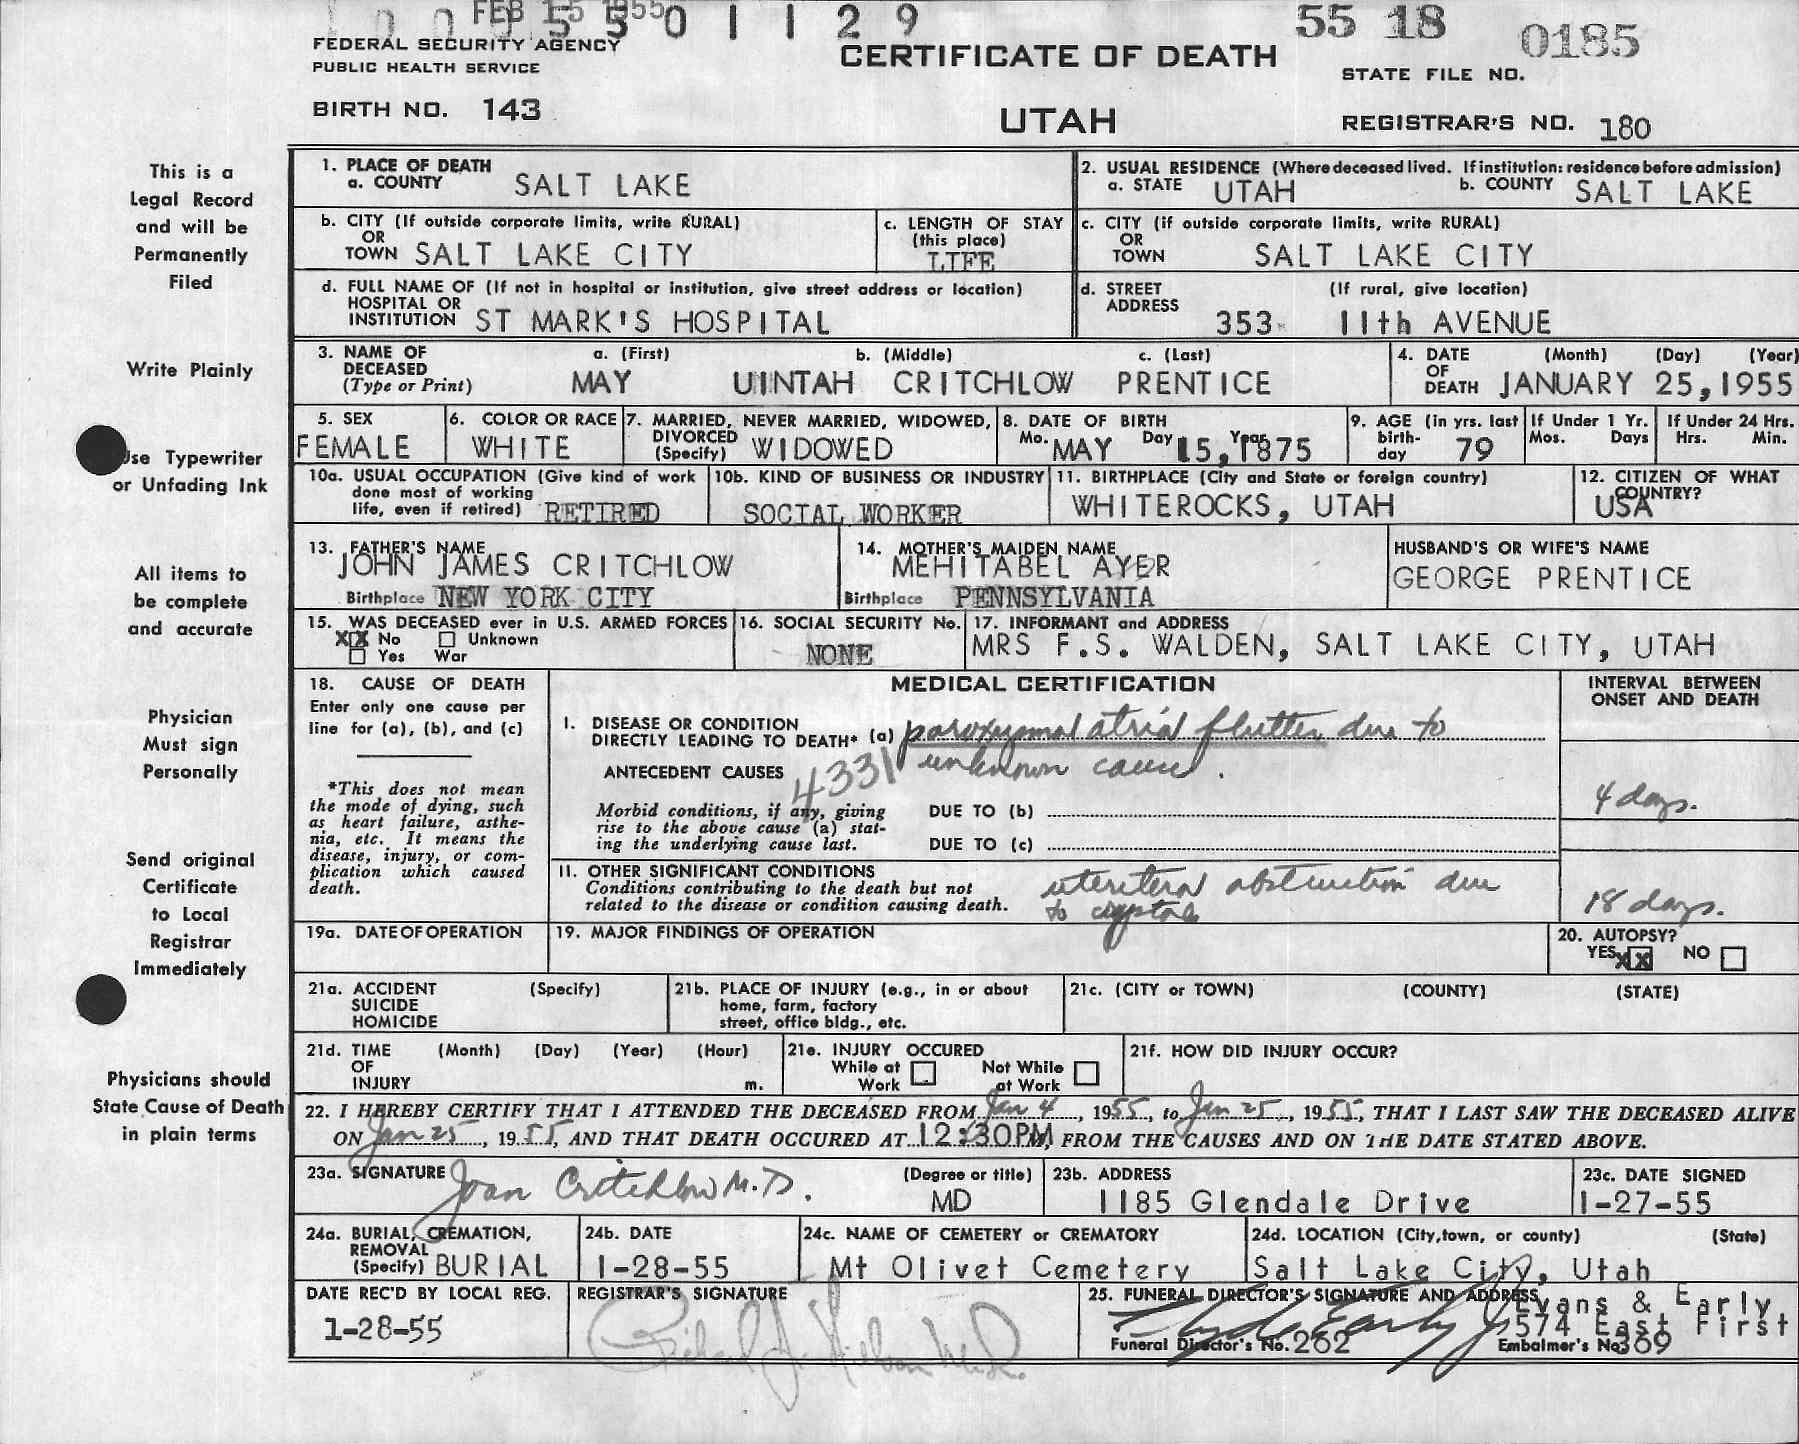 FEB 15 1955
5 5 0 1 1 2 9
55 18 0185
FEDERAL SECURITY AGENCY
PUBLIC HEALTH SERVICE
CERTIFICATE OF DEATH
STATE FILE NO.
BIRTH NO. 143
UTAH
REGISTRAR'S NO. 180
This is a
Legal Record
and will be
Permanently
Filed
Write Plainly
Use Typewriter
or Unfading Ink
All items to
be complete
and accurate
Physician
Must sign
Personally
Send original
Certificate
to Local
Registrar
Immediately
Physicians should
State Cause of Death
in plain terms
1. PLACE OF DEATH
a. COUNTY SALT LAKE
2. USUAL RESIDENCE (Where deceased lived. If institution: residence before admission)
a. STATE UTAH b. COUNTY SALT LAKE
b. CITY (If outside corporate limits, write RURAL)
OR
TOWN SALT LAKE CITY
c. LENGTH OF STAY
(this place)
LIFE
c. CITY (if outside corporate limits, write RURAL)
OR
TOWN SALT LAKE CITY
d. FULL NAME OF (If not in hospital or institution, give street address or location)
HOSPITAL OR
INSTITUTION ST MARK'S HOSPITAL
d. STREET (If rural, give location)
ADDRESS
353 11th AVENUE
3. NAME OF
DECEASED
(Type or Print)
a. (First) b. (Middle) c. (Last)
MAY UINTAH CRITCHLOW PRENTICE
4. DATE (Month) (Day) (Year)
OF
DEATH JANUARY 25, 1955
5. SEX
FEMALE
6. COLOR OR RACE
WHITE
7. MARRIED, NEVER MARRIED, WIDOWED,
DIVORCED
(Specify) WIDOWED
8. DATE OF BIRTH
Mo. MAY Day 15, Year 1875
9. AGE (in yrs. last
birth-
day 79
If Under 1 Yr.
Mos. Days
If Under 24 Hrs.
Hrs. Min.
10a. USUAL OCCUPATION (Give kind of work
done most of working
life, even if retired) RETIRED
10b. KIND OF BUSINESS OR INDUSTRY
SOCIAL WORKER
11. BIRTHPLACE (City and State or foreign country)
WHITEROCKS, UTAH
12. CITIZEN OF WHAT
COUNTRY?
USA
13. FATHER'S NAME
JOHN JAMES CRITCHLOW
Birthplace NEW YORK CITY
14. MOTHER'S MAIDEN NAME
MEHITABEL AYER
Birthplace PENNSYLVANIA
HUSBAND'S OR WIFE'S NAME
GEORGE PRENTICE
15. WAS DECEASED ever in U.S. ARMED FORCES
XX No Unknown
Yes War
16. SOCIAL SECURITY No.
NONE
17. INFORMANT and ADDRESS
MRS F.S. WALDEN, SALT LAKE CITY, UTAH
18. CAUSE OF DEATH
Enter only one cause per
line for (a), (b), and (c)
*This does not mean
the mode of dying, such
as heart failure, asthe-
nia, etc. It means the
disease, injury, or com-
plication which caused
death.
MEDICAL CERTIFICATION
I. DISEASE OR CONDITION
DIRECTLY LEADING TO DEATH* (a) paroxysmal atrial flutter due to
unknown cause.
ANTECEDENT CAUSES
4331
Morbid conditions, if any, giving
rise to the above cause (a) stat-
ing the underlying cause last.
DUE TO (b)
DUE TO (c)
INTERVAL BETWEEN
ONSET AND DEATH
4 days.
II. OTHER SIGNIFICANT CONDITIONS
Conditions contributing to the death but not
related to the disease or condition causing death.
obstruction due
to
18 days.
19a. DATE OF OPERATION
19. MAJOR FINDINGS OF OPERATION
20. AUTOPSY?
YES XX NO
21a. ACCIDENT (Specify)
SUICIDE
HOMICIDE
21b. PLACE OF INJURY (e.g., in or about
home, farm, factory
street, office bldg., etc.
21c. (CITY or TOWN) (COUNTY) (STATE)
21d. TIME (Month) (Day) (Year) (Hour)
OF
INJURY m.
21e. INJURY OCCURED
While at Not While
Work at Work
21f. HOW DID INJURY OCCUR?
22. I HEREBY CERTIFY THAT I ATTENDED THE DECEASED FROM Jan 4, 1955, to Jan 25, 1955, THAT I LAST SAW THE DECEASED ALIVE
ON Jan 25, 1955, AND THAT DEATH OCCURED AT 12:30PM, FROM THE CAUSES AND ON THE DATE STATED ABOVE.
23a. SIGNATURE Joan Critchlow M.D. (Degree or title)
MD
23b. ADDRESS
1185 Glendale Drive
23c. DATE SIGNED
1-27-55
24a. BURIAL, CREMATION,
REMOVAL
(Specify) BURIAL
24b. DATE
1-28-55
24c. NAME OF CEMETERY OR CREMATORY
Mt Olivet Cemetery
24d. LOCATION (City, town, or county) (State)
Salt Lake City, Utah
DATE REC'D BY LOCAL REG.
1-28-55
REGISTRAR'S SIGNATURE
25. FUNERAL DIRECTOR'S SIGNATURE AND ADDRESS
Evans & Early,
574 East First
Funeral Director's No. 262 Embalmer's No. 369